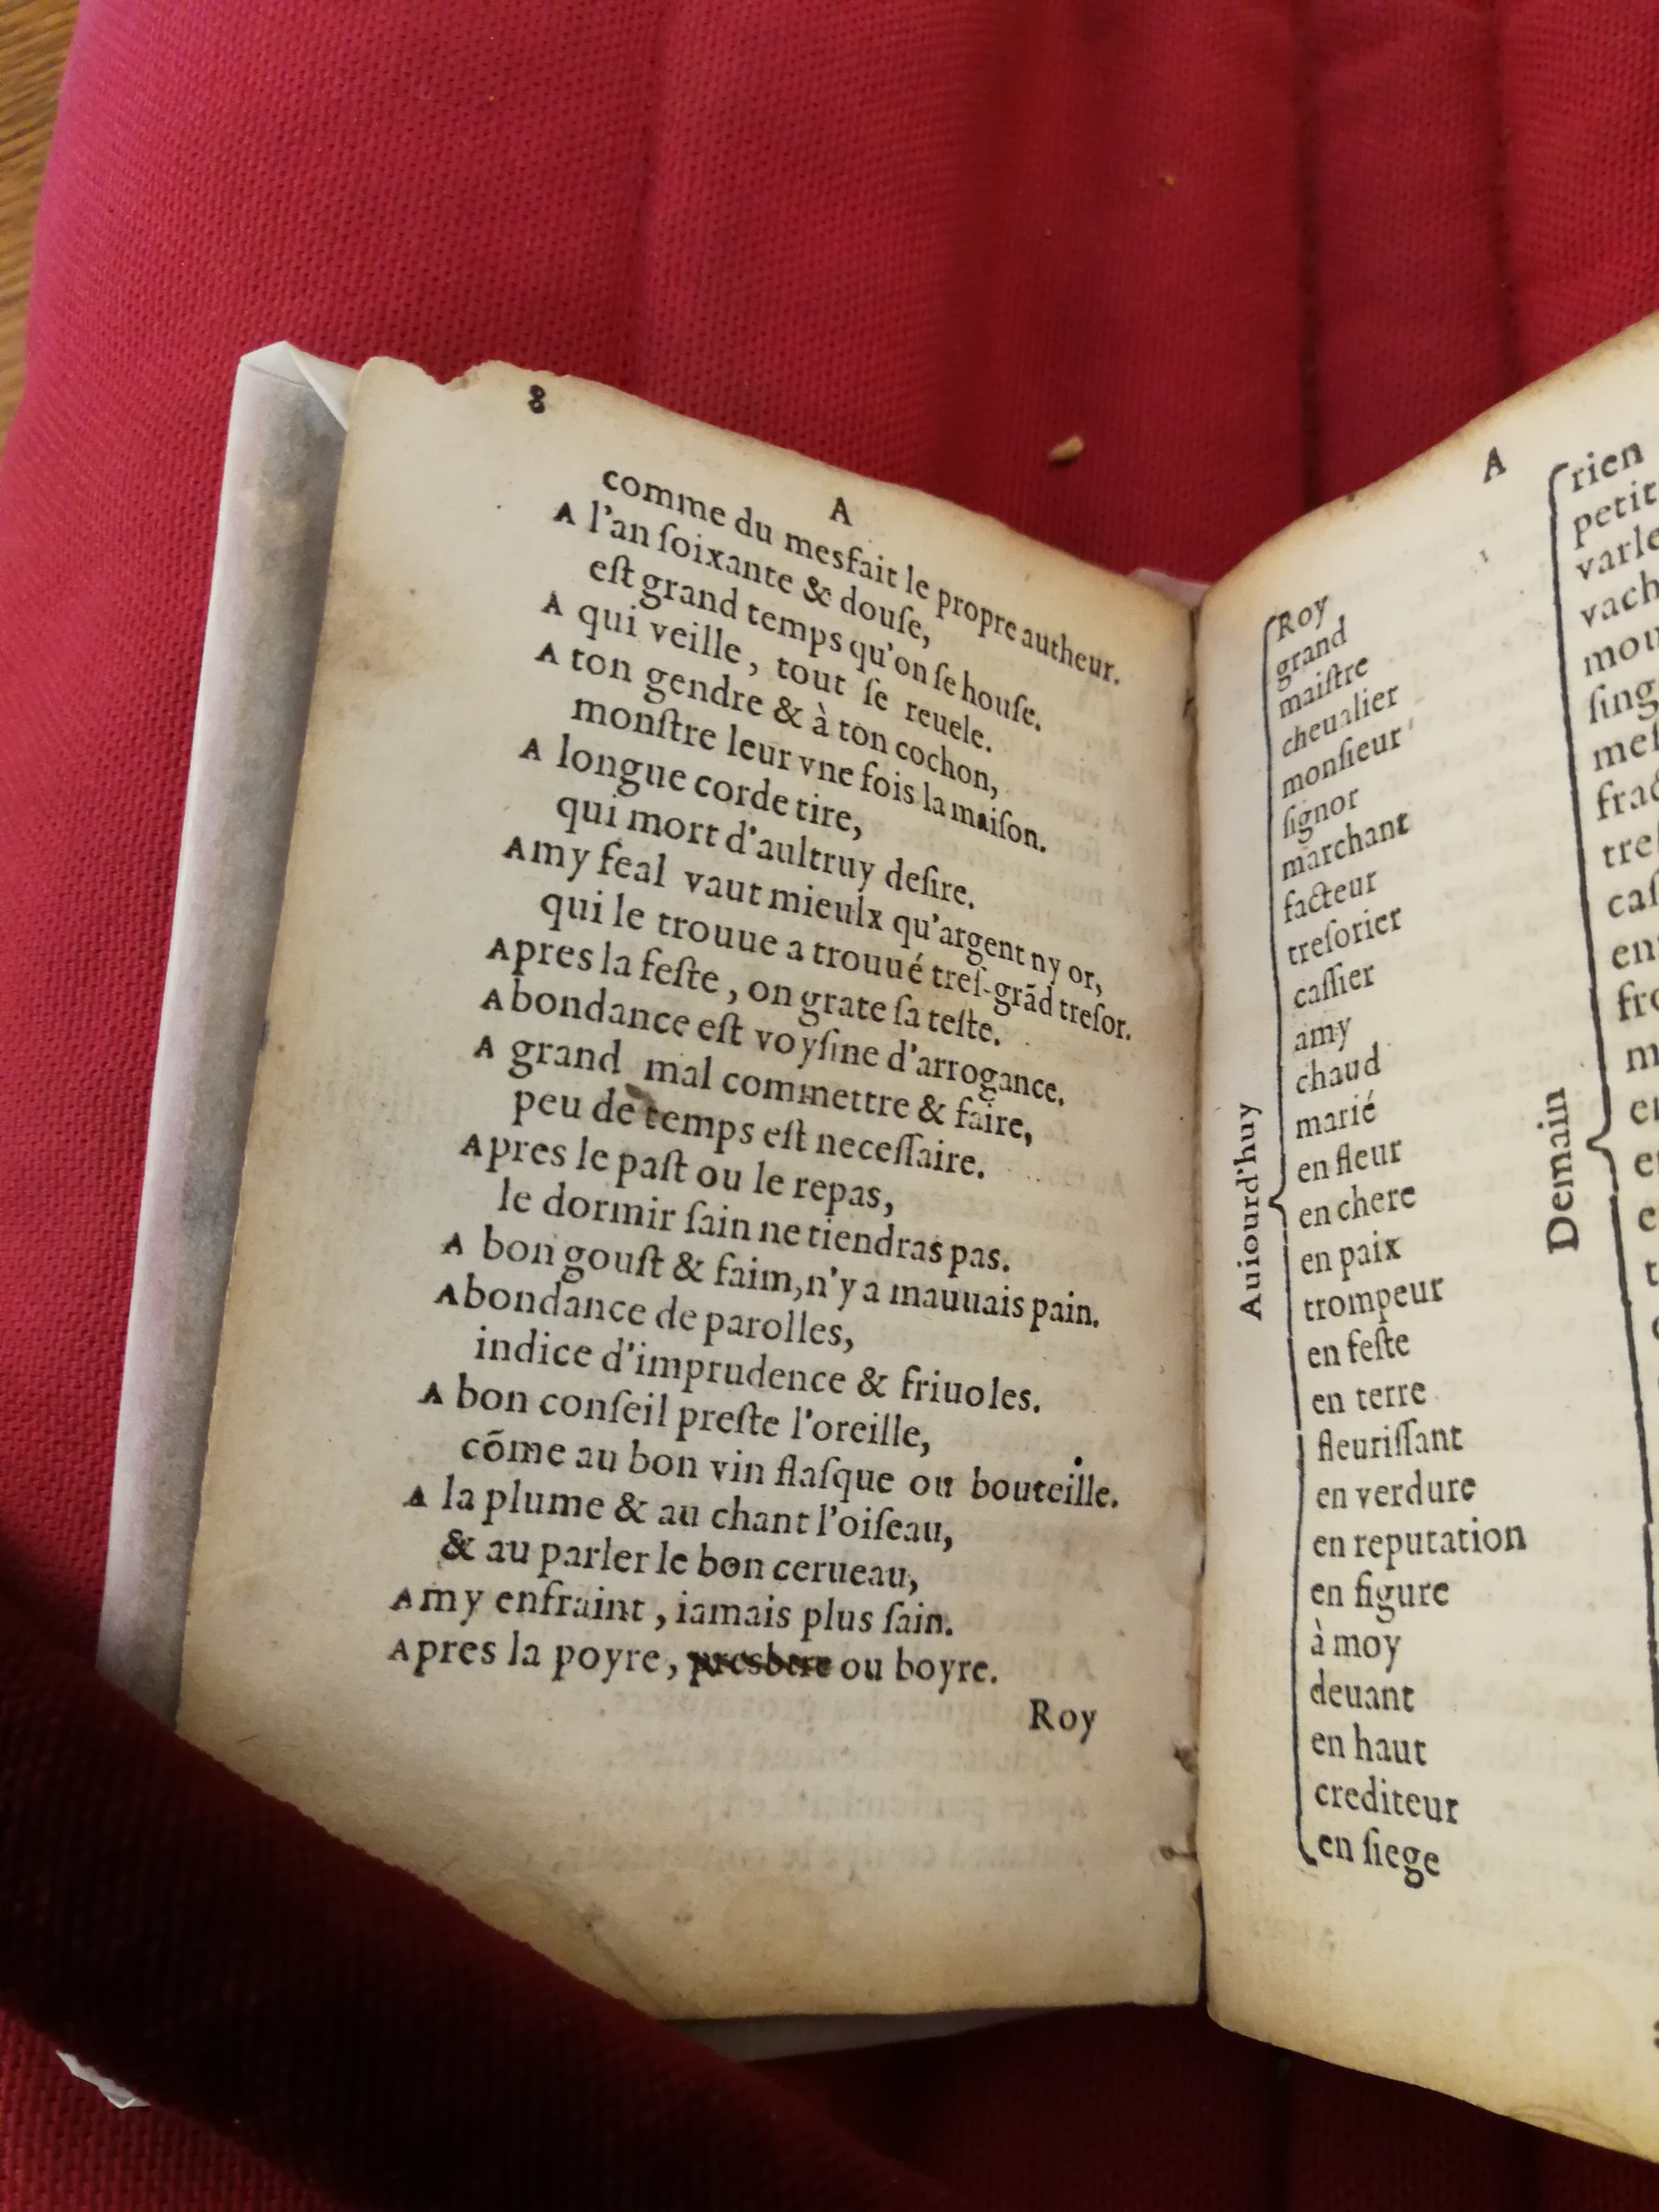 8
A
comme du mesfait le propre autheur.
A l'an ſoixante & douſe,
eſt grand temps qu'on ſe houſe.
A qui veille, tout ſe reuele.
A ton gendre & à ton cochon,
monſtre leur vne fois la maiſon.
A longue corde tire,
qui mort d'aultruy deſire.
Amy feal vaut mieulx qu'argent ny or,
qui le trouue a trouué treſ-grād treſor.
Apres la feſte, on grate ſa teſte.
Abondance eſt voyſine d'arrogance.
A grand mal commettre & faire,
peu de temps eſt neceſſaire.
Apres le paſt ou le repas,
le dormir ſain ne tiendras pas.
A bon gouſt & faim, n'y a mauuais pain.
Abondance de parolles,
indice d'imprudence & friuoles.
A bon conſeil preſte l'oreille,
cõme au bon vin flaſque ou bouteille.
A la plume & au chant l'oiſeau,
& au parler le bon cerueau,
Amy enfraint, iamais plus ſain.
Apres la poyre, presbtre ou boyre.
Roy
A
Auiourd'huy
Roy
grand
maiſtre
cheualier
monſieur
ſignor
marchant
facteur
treſorier
caſſier
amy
chaud
marié
en fleur
en chere
en paix
trompeur
en feſte
en terre
fleuriſſant
en verdure
en reputation
en figure
à moy
deuant
en haut
crediteur
en ſiege
Demain
rien
petit